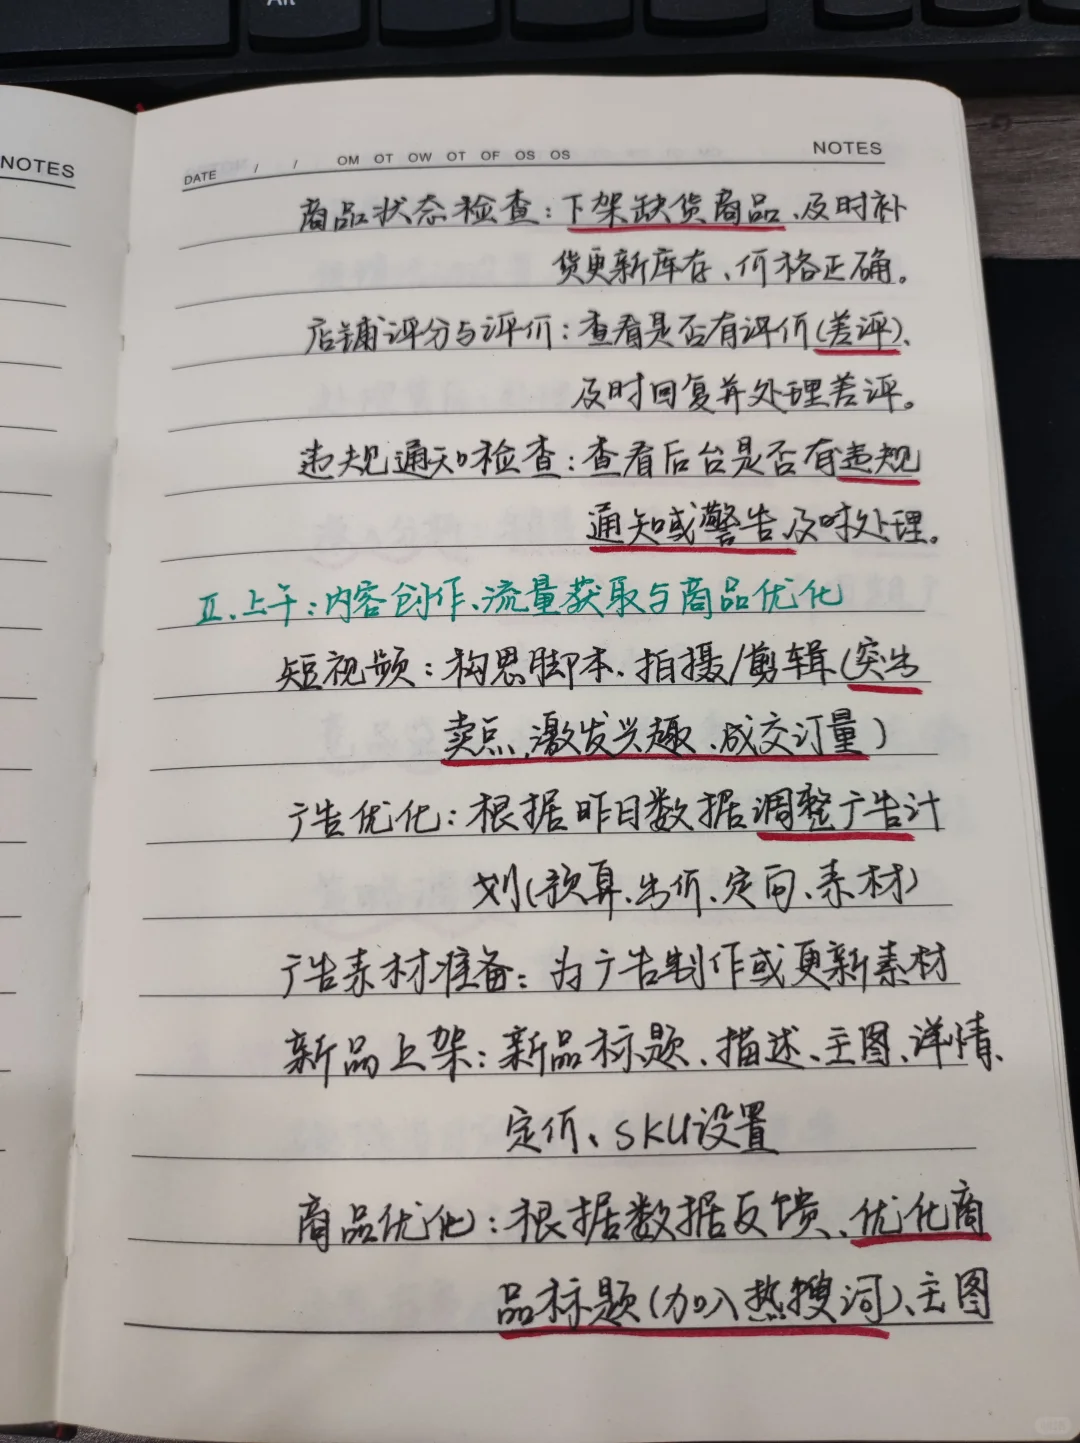 Alt
NOTES
DATE / / OM OT OW OT OF OS OS NOTES
商品状态检查：下架缺货商品、及时补
货更新库存、价格正确。
店铺评分与评价：查看是否有评价(差评)、
及时回复并处理差评。
违规通知检查：查看后台是否有违规
通知或警告及时处理。
II、上午：内容创作、流量获取与商品优化
短视频：构思脚本、拍摄/剪辑(突出
卖点，激发兴趣、成交订量)
广告优化：根据昨日数据调整广告计
划(预算、出价、定向、素材)
广告素材准备：为广告制作或更新素材
新品上架：新品标题、描述、主图、详情、
定价、SKU设置
商品优化：根据数据反馈、优化商
品标题(加入热搜词)、主图